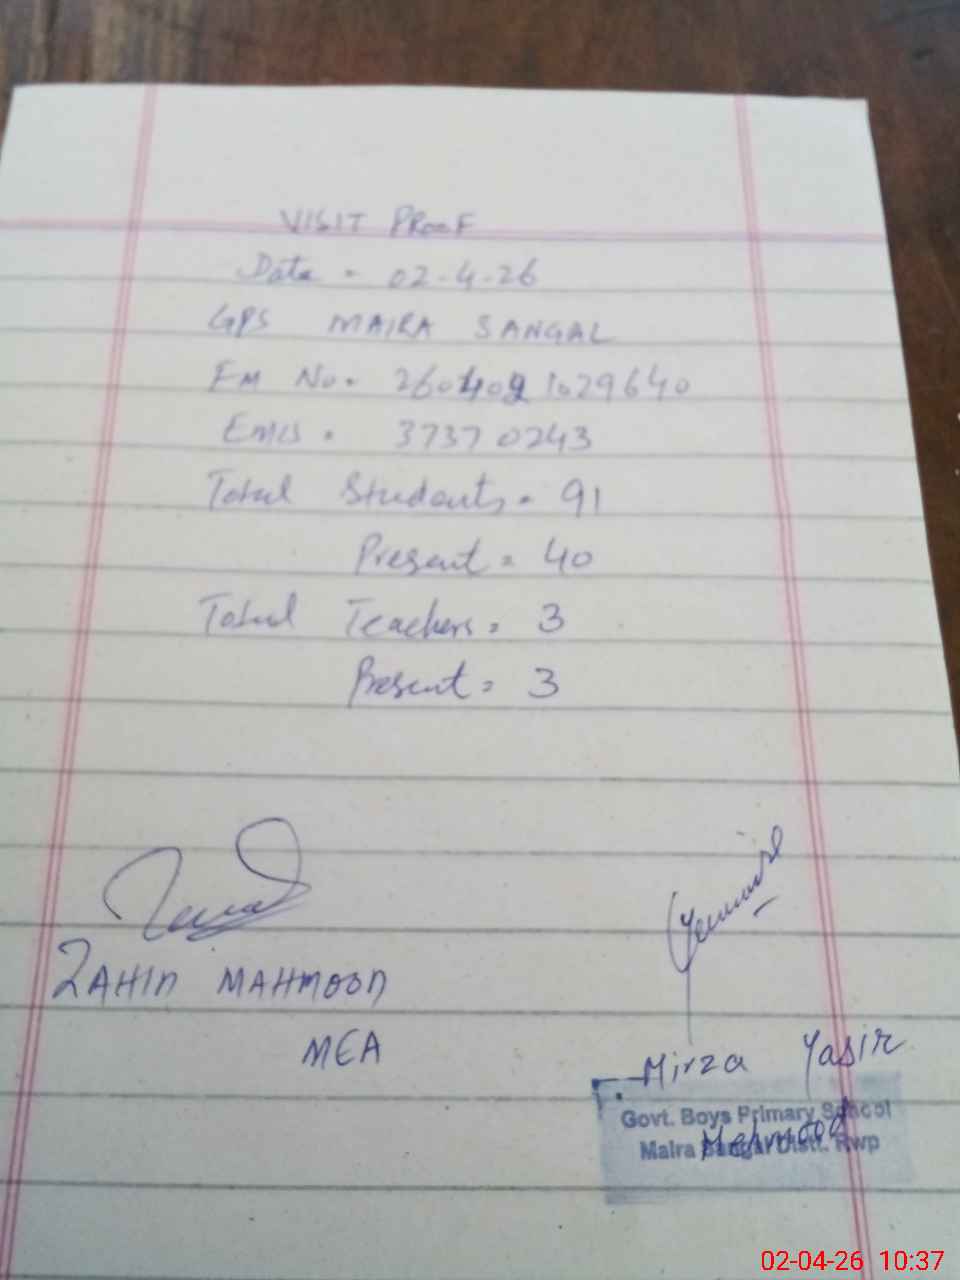 VISIT PROOF
Date = 02-4-26
GPS MAIRA SANGAL
EM No. 260402 1029640
EMIS = 37370243
Total Students = 91
Present = 40
Total Teachers = 3
Present = 3
ZAHID MAHMOOD
MEA
Mirza Yasir
Mehmood
Govt. Boys Primary School
Maira Sangal Distt. Rwp
02-04-26 10:37